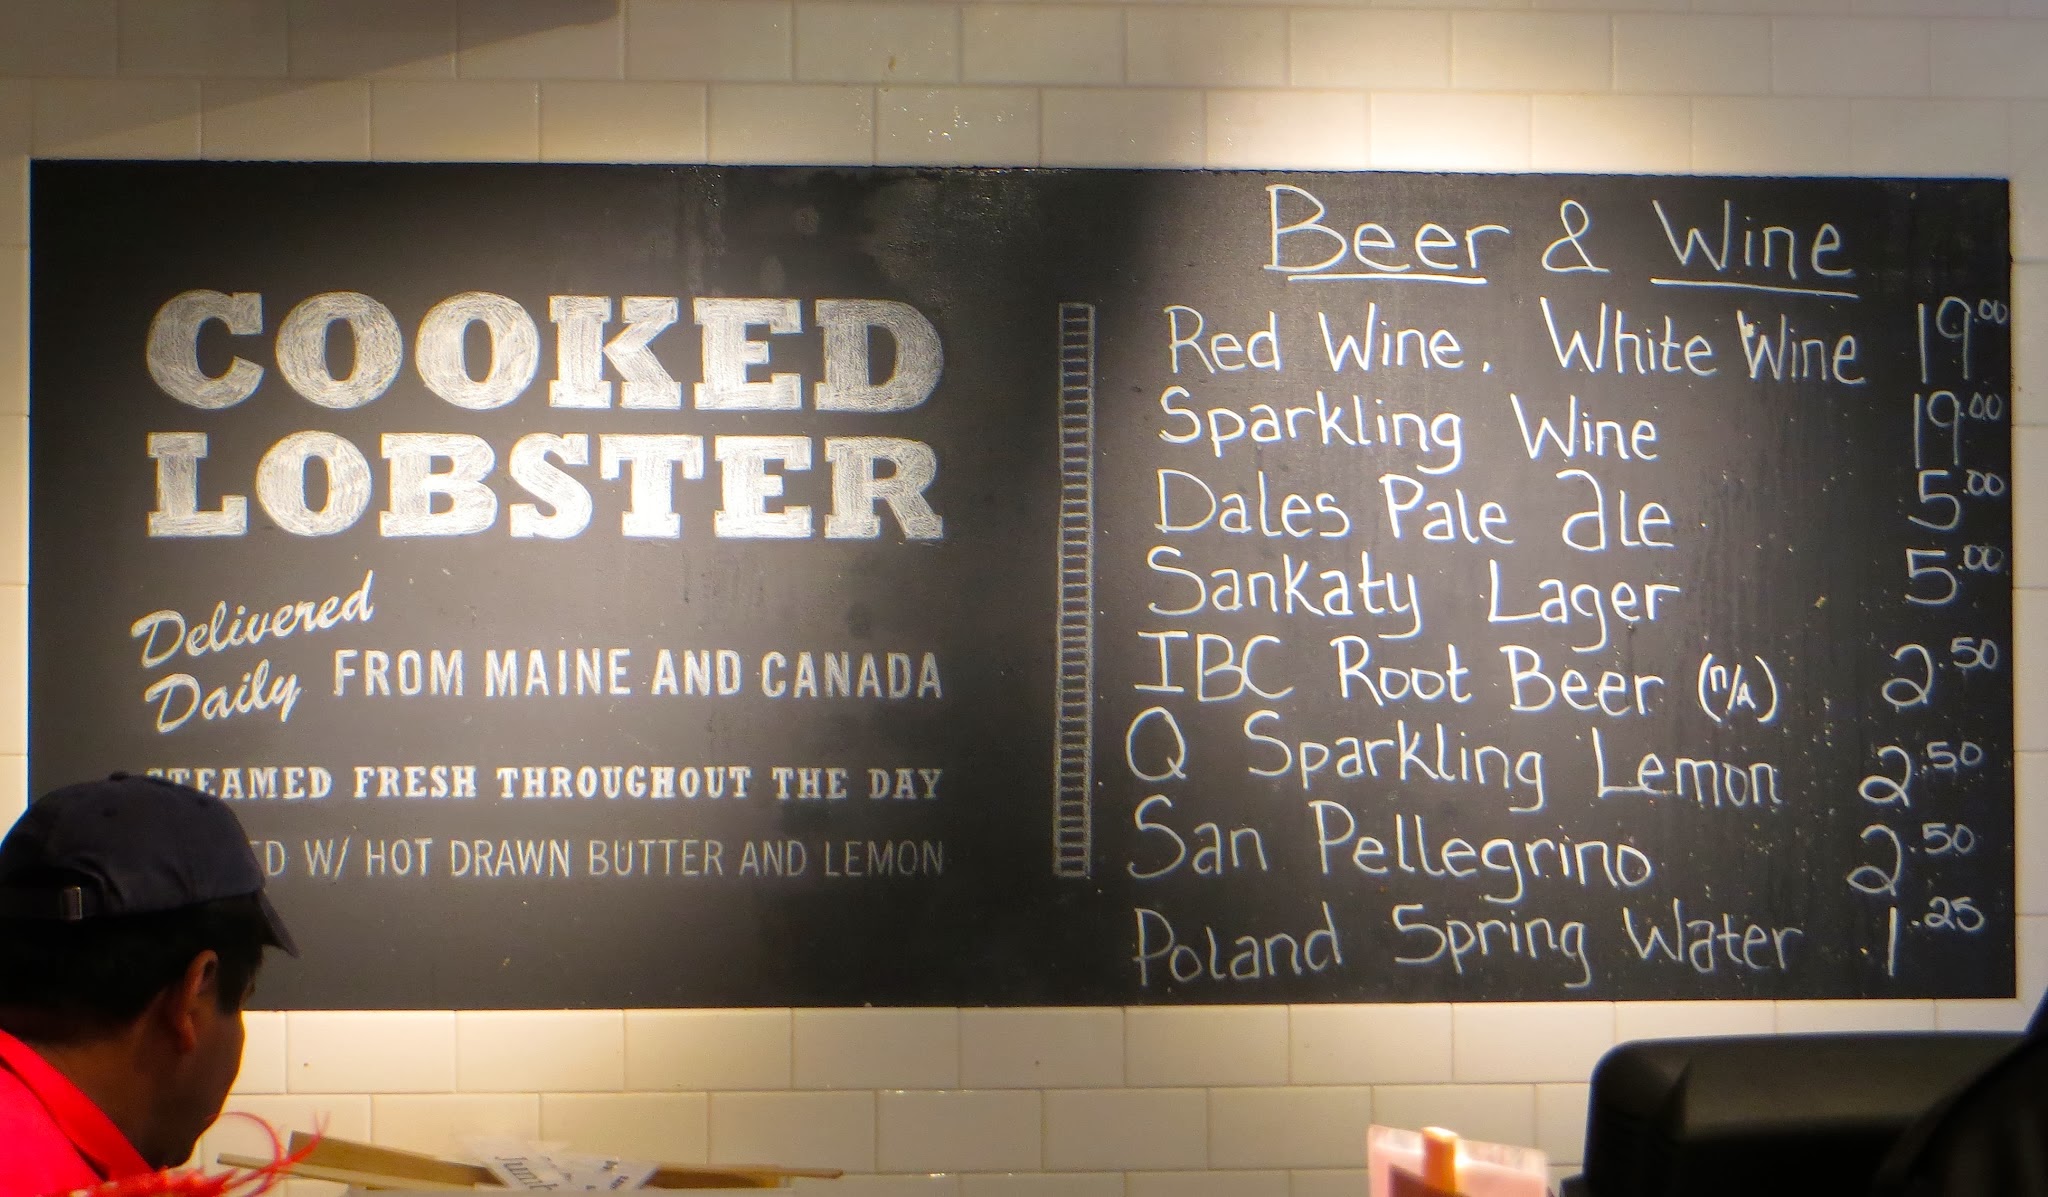 COOKED
LOBSTER
Delivered
Daily FROM MAINE AND CANADA
STEAMED FRESH THROUGHOUT THE DAY
W/ HOT DRAWN BUTTER AND LEMON
Beer & Wine
Red Wine. White Wine 19.00
Sparkling Wine 19.00
Dales Pale Ale 5.00
Sankaty Lager 5.00
IBC Root Beer (n/A) 2.50
Q Sparkling Lemon 2.50
San Pellegrino 2.50
Poland Spring Water 1.25